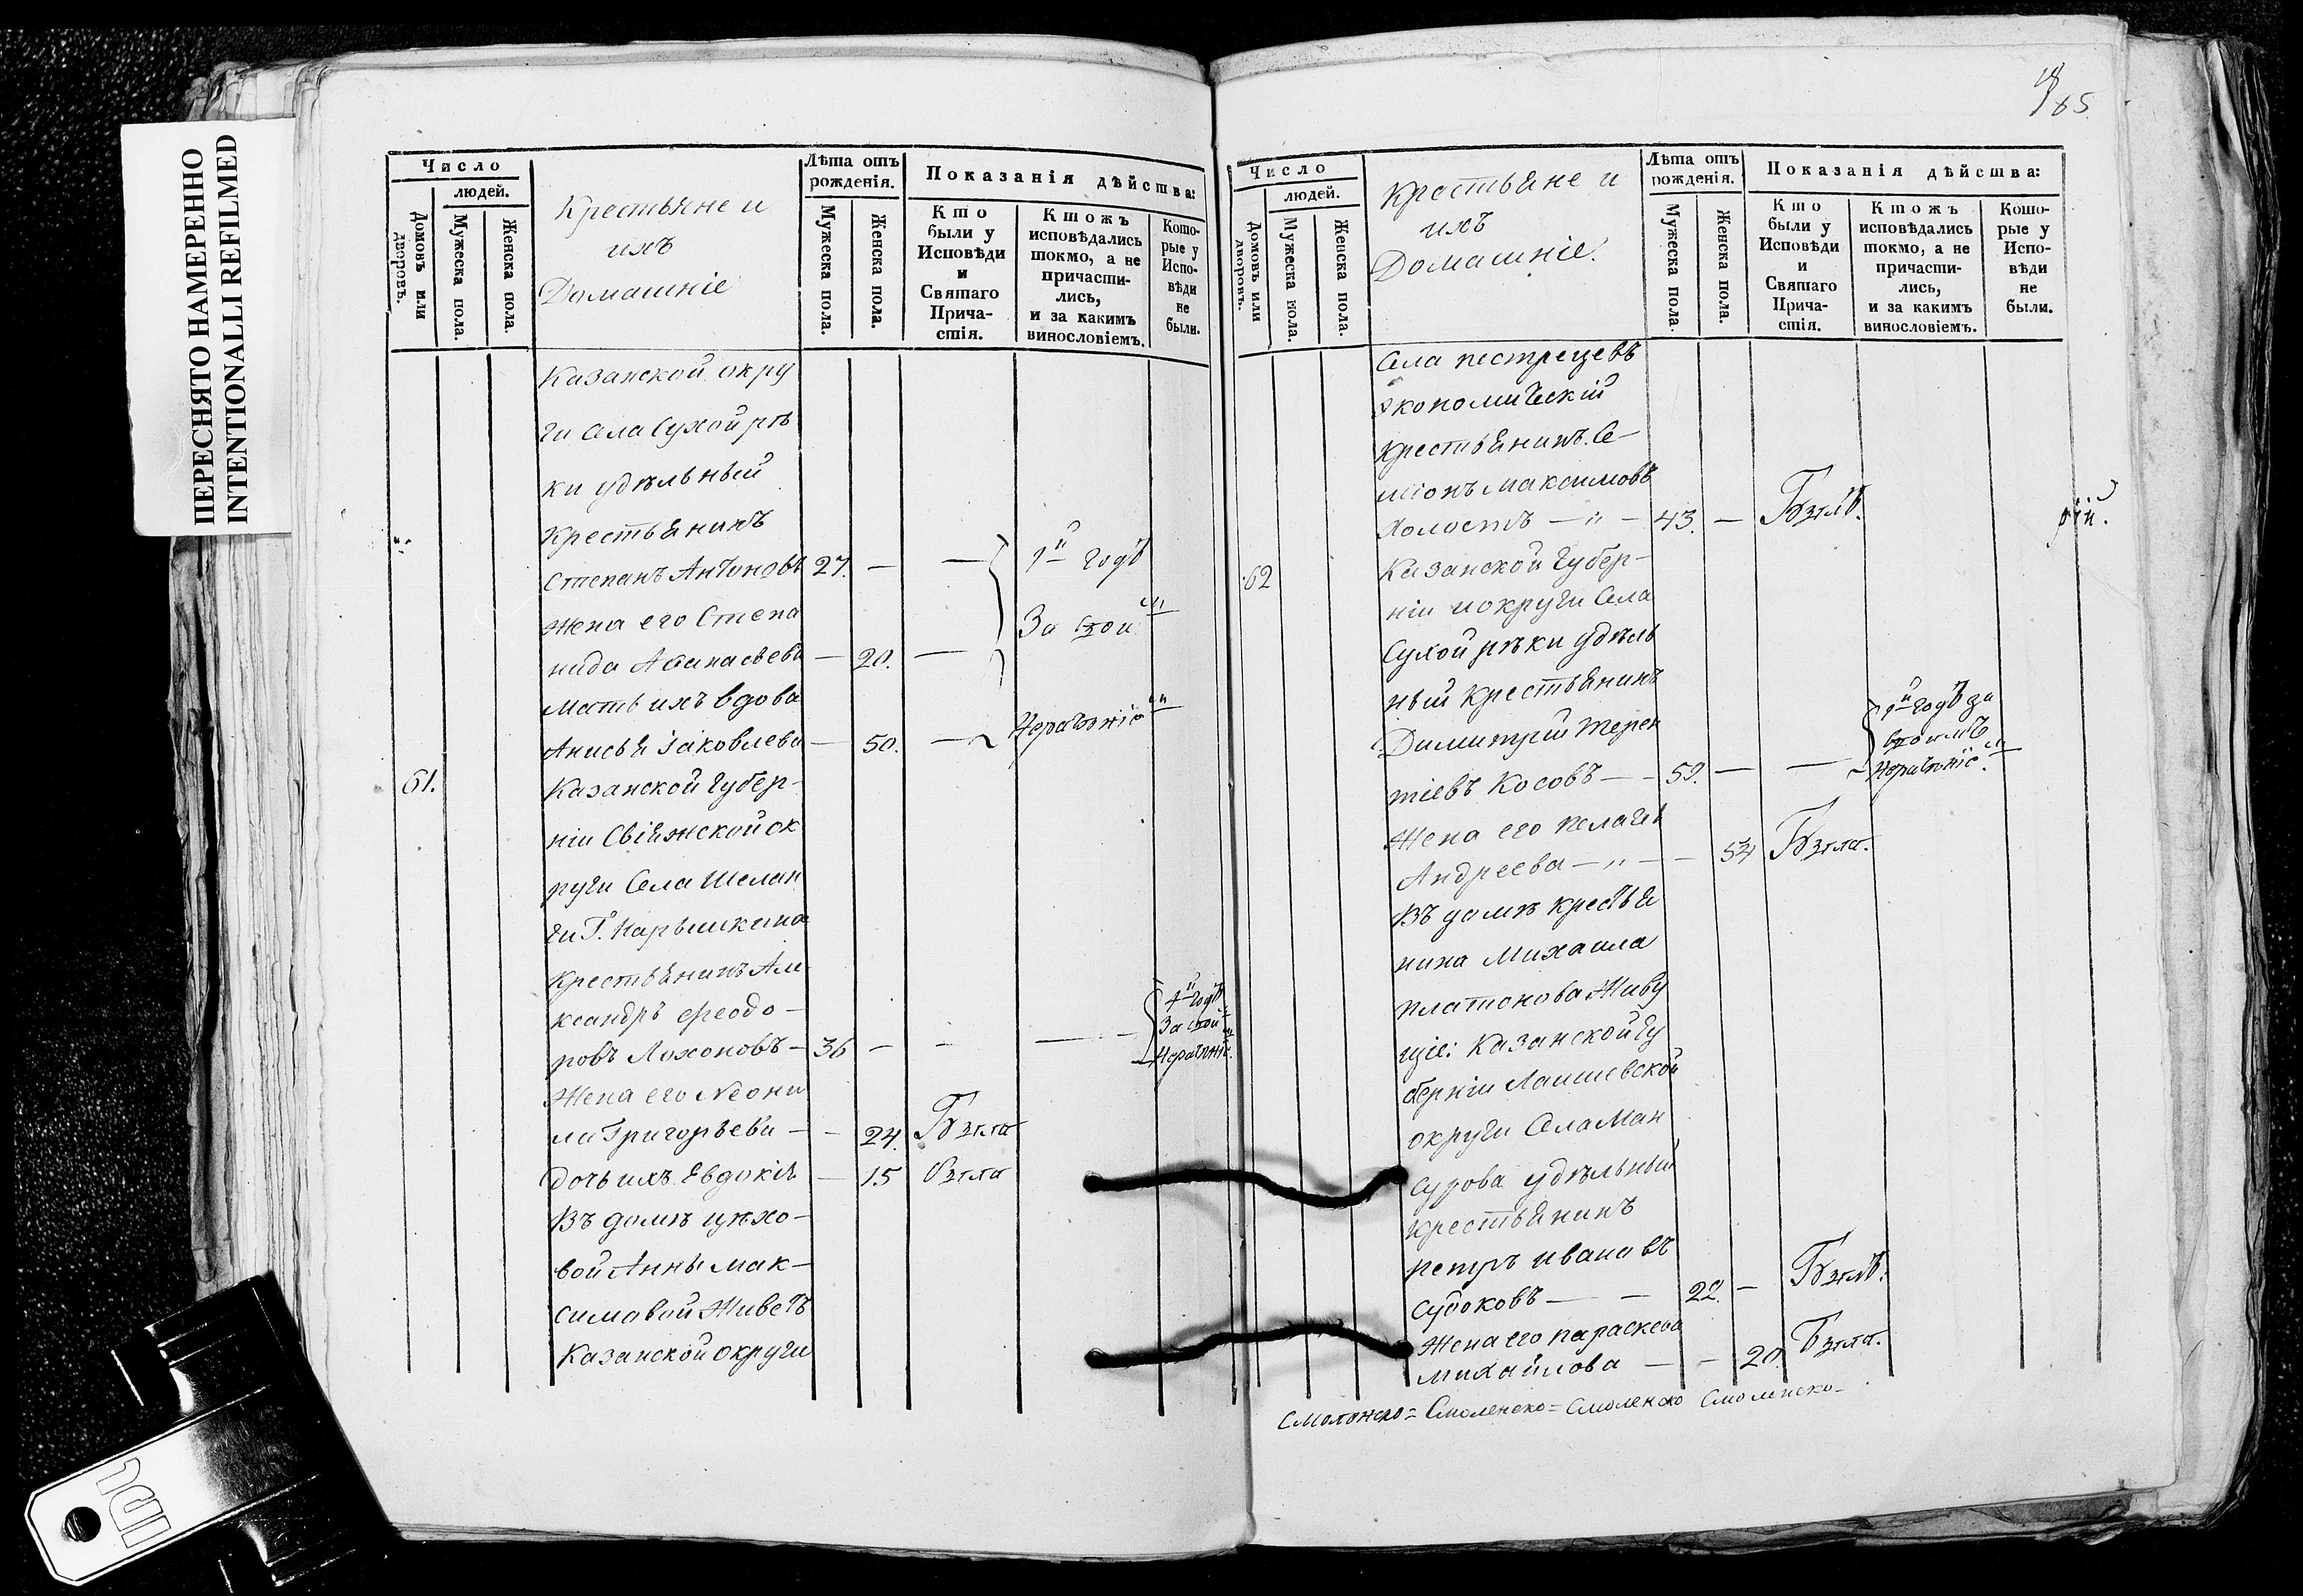 ПЕРЕСНЯТО НАМЕРЕННО
INTENTIONALLI REFILMED
Число
людей.
Домовъ или дворовъ.
Мужеска пола.
Женска пола.
Крестьяне и
ихъ
Домашніе
Лѣта отъ рожденія.
Мужеска пола.
Женска пола.
Показанія дѣйства:
Кто были у Исповѣди и Святаго Причастія.
Ктожъ исповѣдались токмо, а не причастились, и за какимъ винословіемъ.
Которые у Исповѣди не были.
Казанской окру
ги Села Сухой рѣ
ки удѣльный
крестьянинъ
Степанъ Антоновъ 27. — — 1й годъ
Жена его Степа
За
нида Афанасьева — 20. —
Мать ихъ вдова
Анисья Iаковлева — 50. —
61. Казанской Губер-
ніи Свіяжской ок
руги Села Шелан
ги Г. Нарышкина
Крестьянинъ Але
ксандръ Феодо-
ровъ Лохоновъ — 36 — —
годъ
За
Жена его Неони
ла Григорьева — — 24. Бзтла
дочь ихъ Евдокія — 15 бзтла
Въ домѣ цѣхо-
вой Анны Мак-
симовой Живетъ
Казанской округи
85
Число
людей.
Домовъ или дворовъ.
Мужеска пола.
Женска пола.
Крестьяне и
ихъ
Домашніе.
Лѣта отъ рожденія.
Мужеска пола.
Женска пола.
Показанія дѣйства:
Кто были у Исповѣди и Святаго Причастія.
Ктожъ исповѣдались токмо, а не причастились, и за какимъ винословіемъ.
Которые у Исповѣди не были.
Села пестрецевъ
экономическій
крестьянинъ Се-
міонъ Максимовъ
холостъ — " — 43. — Бзтлъ.
62 Казанской Губер-
ніи и округи Села
Сухой рѣки удѣль
ный крестьянинъ
Димитрій Терен
тіевъ Косовъ — — 59. — —
1й годъ за
Жена его Пелагея
Андреева — " — — 54 Бзтла.
Въ домѣ крестья
нина Михаила
Платонова Живу
щіе: Казанской Гу
берніи Лаишевской
округи Села Ман
сурова удѣльный
крестьянинъ
петръ ивановъ
Субоковъ — — 22. — Бзтлъ.
Жена его параскева
михайлова — — 20. Бзтла.
Смоленско= Смоленско= Смоленско Смоленско-